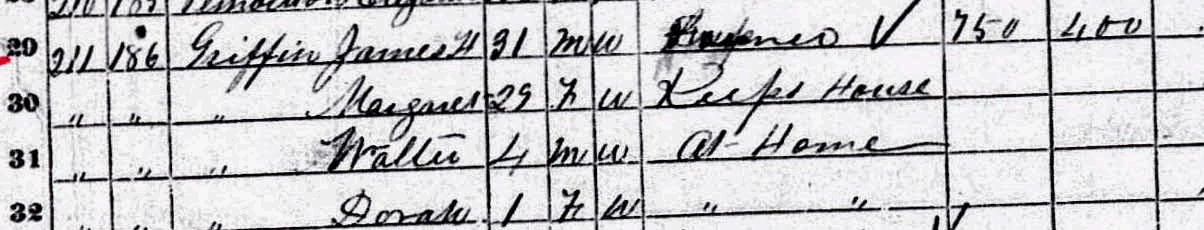 29 211 186 Griffin James H 31 M W 750 400
30 " " " Margaret 29 F W Keeps House
31 " " " Walter 4 M W At Home
32 " " " Dorah 1 F W " "